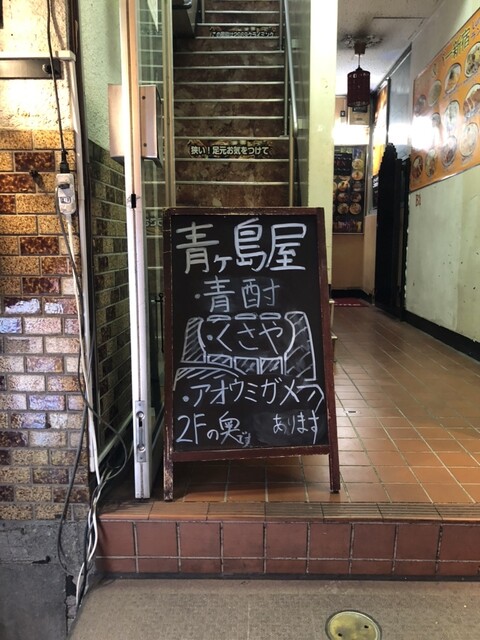 狭い！足元お気をつけて
青ヶ島屋
・青酎
・くさや
・アオウミガメラ
2Fの奥です
あります